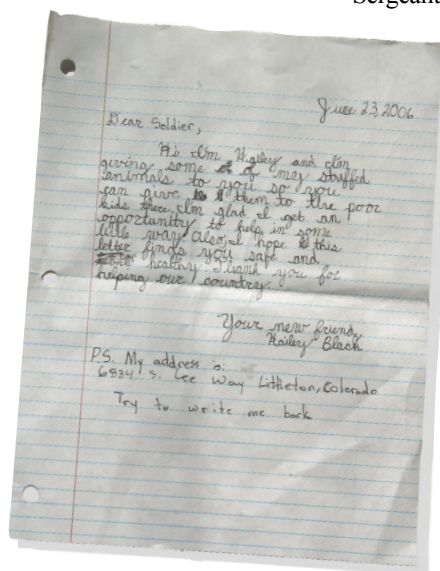 Sergeant
June 23, 2006
Dear Soldier,
Hi I'm Hailey and I'm
giving some of my stuffed
animals to you so you
can give them to the poor
kids there. I'm glad I get an
opportunity to help in some
little way. Also, I hope this
letter finds you safe and
healthy. Thank you for
helping our country.
Your new friend,
Hailey Black
P.S. My address is:
6834 S. Lee Way Littleton, Colorado
Try to write me back